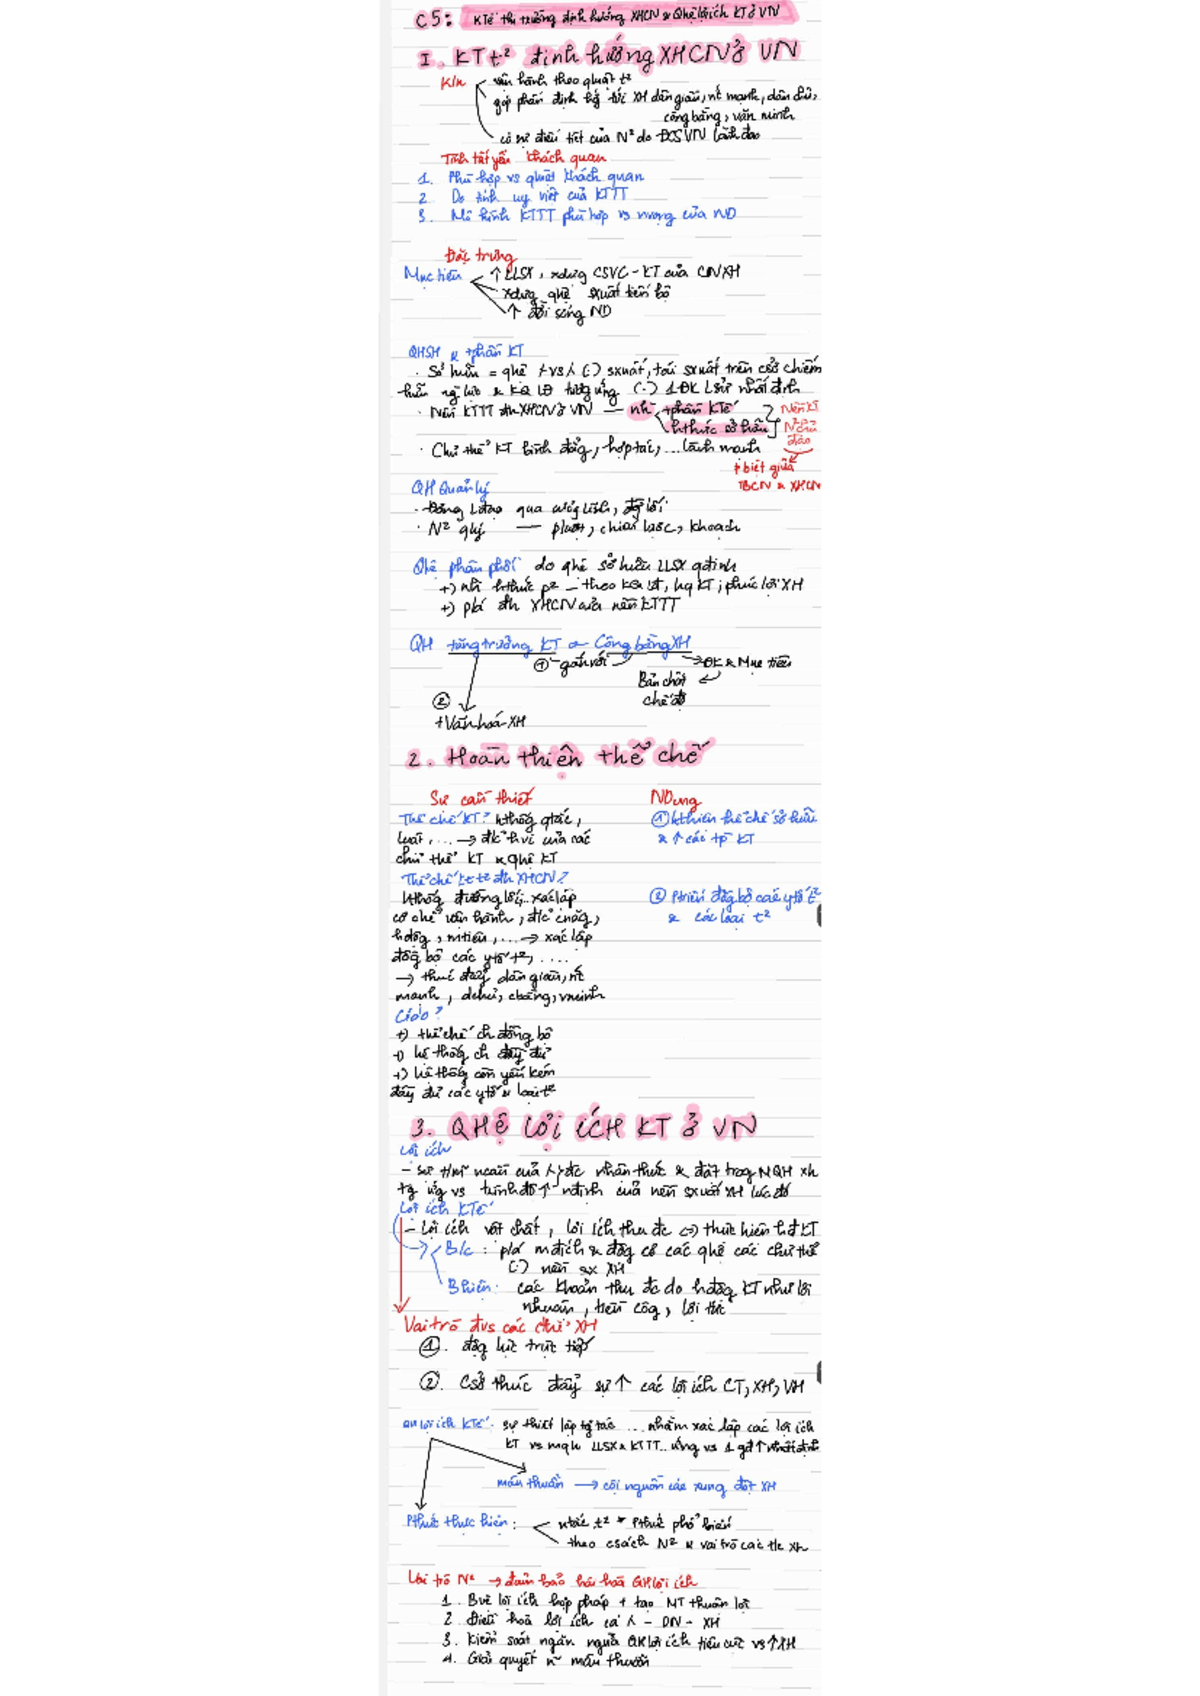 C5: KTế thị trường định hướng XHCN & Qhệ lợi ích KT ở VN
I. KT t² định hướng XHCN ở VN
K/n
vận hành theo quluật t²
góp phần định hg tới XH dân giàu, nc mạnh, dân chủ,
công bằng, văn minh
có sự điều tiết của N² do ĐCSVN lãnh đạo
Tính tất yếu khách quan
1. Phù hợp vs qluật khách quan
2. Do tính ưu việt của KTTT
3. Mô hình KTTT phù hợp vs nvọng của ND
Đặc trưng
Mục tiêu
↑ LLSX, xdựng CSVC - KT của CNXH
xdựng qhệ sxuất tiến bộ
↑ đời sống ND
QHSH & tphần KT
· Sở hữu = qhệ vs (.) sxuất, tái sxuất trên csở chiếm
hữu nglực & KQ LĐ tương ứng (.) 1 ĐK Lsử nhất định
· Nền KTTT đh XHCN ở VN — nh tphần KTế
hthức sở hữu
Nền KT
đạo
· Chủ thể KT bình đẳng, hợp tác, ... lành mạnh
biệt giữa
TBCN & XHCN
QH Quản lý
· Đảng Lđạo qua cương lĩnh, đg lối
· N² qlý — pluật, chiến lược, khoạch
Qhệ phân phối do qhệ sở hữu LLSX qđịnh
+) nh hthức p² - theo KQLĐ, hq KT, phúc lợi XH
+) p/á đh XHCN của nền KTTT
QH tăng trưởng KT & Công bằng XH
① gắn với
ĐK & Mục tiêu
Bản chất
chế độ
②
+ Văn hoá-XH
2. Hoàn thiện thể chế
Sự cần thiết
NDung
Thể chế KT? hthống qtắc,
luật, ... → đ/c hvi của các
chủ thể KT & qhệ KT
① hthiện thể chế sở hữu
& ↑ các tp KT
Thể chế kt t² đh XHCN?
hthống đường lối, xác lập
cơ chế vận hành, đ/c cnăg,
hđộg, mtiêu, ... → xác lập
đồng bộ các ytố t², ....
→ thúc đẩy dân giàu, nc
mạnh, dchủ, cbằng, vminh
② Ptriển đồg bộ các ytố t²
& các loại t²
Lí do?
+) thể chế ch đồng bộ
+) hệ thống ch đầy đủ
+) hệ thống còn yếu kém
đầy đủ các ytố & loại t²
3. QHệ LỢI ÍCH KT Ở VN
Lợi ích
- sự t/mãn ncầu của đc nhận thức & đặt trog MQH xh
tg ứg vs trình độ ↑ nđịnh của nền sxuất XH lúc đó
Lợi ích KTế
- Lợi ích vật chất, lợi ích thu đc ⇔ thực hiện hđ KT
B/c: p/á mđích & độg cơ các qhệ các chủ thể
(.) nền sx XH
Bhiện: các khoản thu đc do hđộg KT như lợi
nhuận, tiền côg, lợi tức
Vai trò đvs các chủ XH
①. độg lực trực tiếp
②. Csở thúc đẩy sự ↑ các lợi ích CT, XH, VH
QH lợi ích KTế: sự thiết lập tg tác ... nhằm xác lập các lợi ích
KT vs mqh LLSX & KTTT.. ứng vs 1 gđ ↑ nhất định
mâu thuẫn → cội nguồn các xung đột XH
Pthức thực hiện:
ntắc t² * Pthức phổ biến
theo csách N² & vai trò các tc xh
Vai trò N² → đảm bảo hài hoà QH lợi ích
1. Bvệ lợi ích hợp pháp + tạo MT thuận lợi
2. Điều hoà lợi ích - DN - XH
3. Kiểm soát ngăn ngừa QH lợi ích tiêu cực vs ↑ XH
4. Giải quyết mâu thuẫn